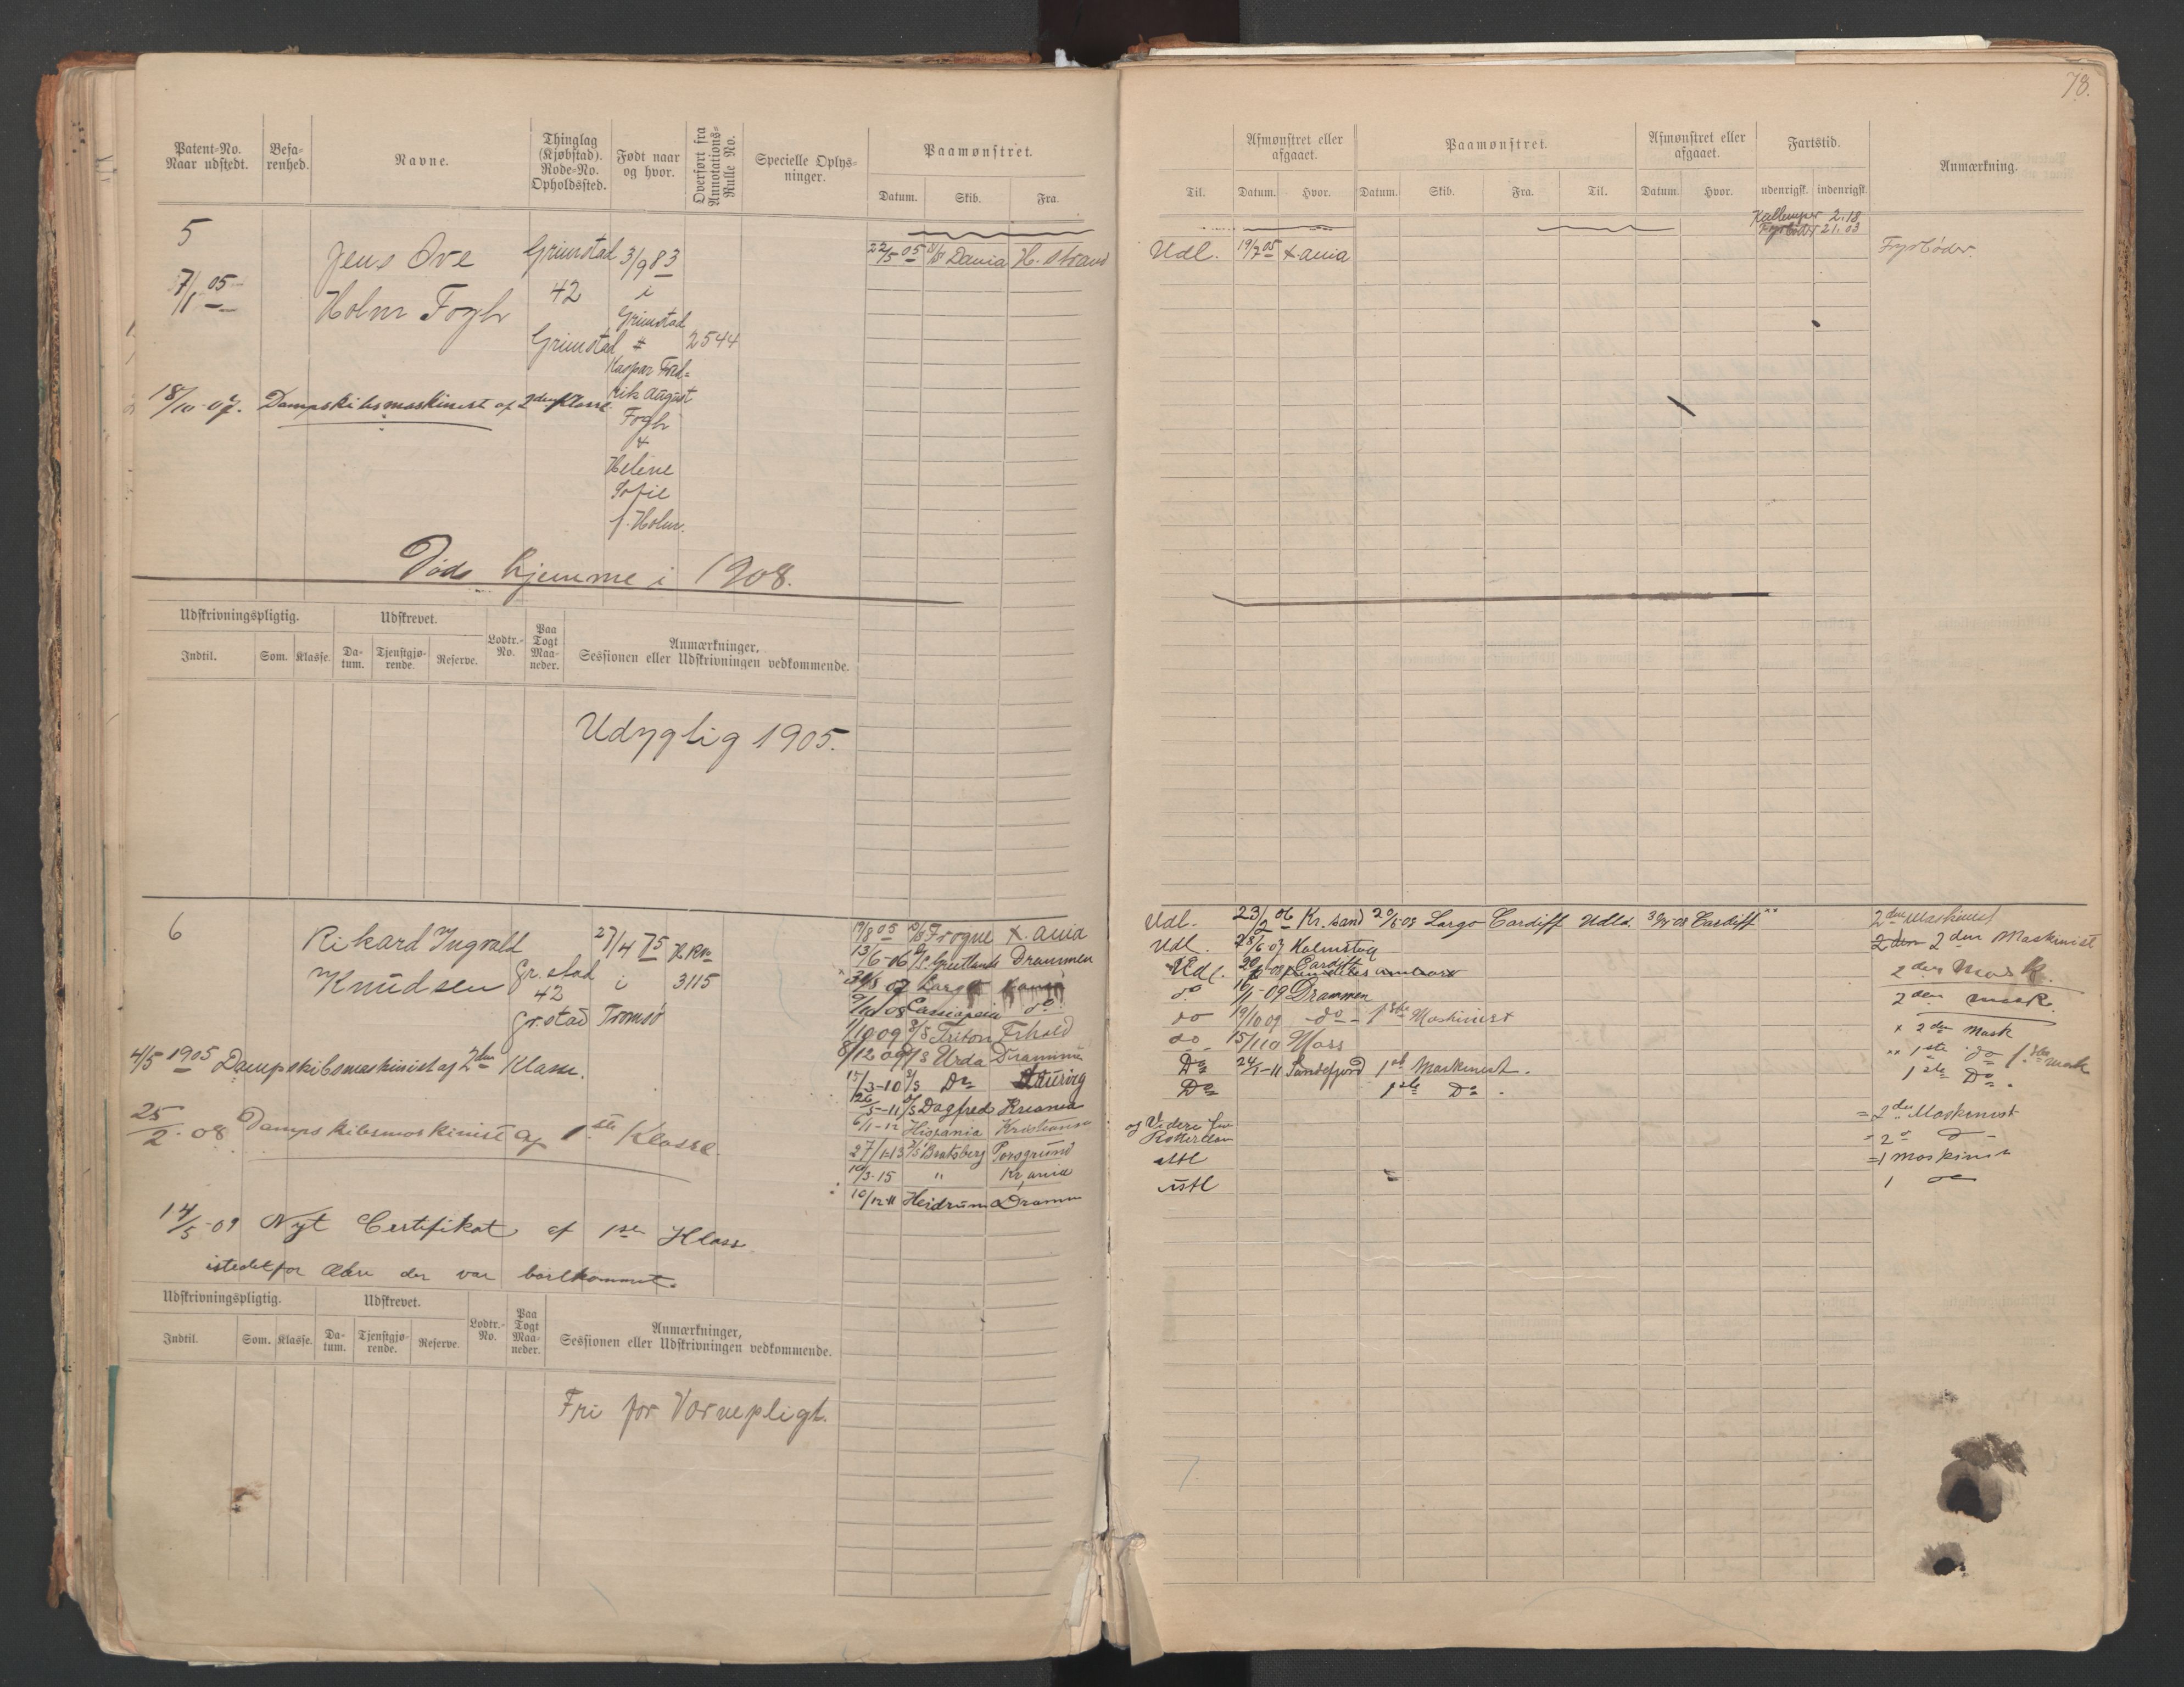 78.
Patent-No. Naar udstedt.
Befarenhed.
Navne.
Thinglag (Kjøbstad). Rode-No. Opholdssted.
Født naar og hvor.
Overført fra Annotations-Rulle No.
Specielle Oplysninger.
Paamønstret.
Datum. Skib. Fra.
Til.
Afmønstret eller afgaaet.
Datum. Hvor.
Paamønstret.
Datum. Skib. Fra. Til.
Afmønstret eller afgaaet.
Datum. Hvor.
Fartstid.
udenrigsk. indenrigsk.
Anmærkning.
5
7/1 05
Jens Ove
Holm Fogh
Grimstad
42
Grimstad
3/9 83
i
Grimstad
Kaspar Fred-
rik August
Fogh
&
Helene
Sofie
f. Holm.
2544
22/5 05 D/S Dania H. strand
Udl. 19/7 05 X.ania
2.18
Fyrbøder 21.03
Fyrbøder.
18/10-07. Dampskibsmaskinist af 2den Klasse
Døde hjemme i 1908.
Udskrivningspligtig.
Udskrevet.
Indtil. Som. Klasse. Datum. Tjenstgjørende. Reserve.
Lodtr.-No.
Paa Togt Maaneder.
Anmærkninger, Sessionen eller Udskrivningen vedkommende.
Udygtig 1905.
6
Rikard Ingvald
Knudsen
Gr.stad
42
Gr.stad
27/4 75
i
Tromsø
3115
4/5 1905 Dampskibsmaskinist af 2den Klasse.
25/2-08 Dampskibsmaskinist af 1ste Klasse.
14/5-09 Nyt Certifikat af 1ste Klass
istedetfor Ældre der var bortkommet.
19/8 05 D/S Frogne X.ania
13/6-06 Drammen
Largo
Cassiopeia do
1/10 09 S/S Triton Frhald
8/12 09 D/S Urda Drammen
15/3-10 S/S Do
26/5-11 S/S Dagfred Kriania
6/1-12 Hispania Kristiania
27/1-13 D/S Bratsberg Porsgrund
10/3-15 " Kr,ania
Heidrum Dramm
Udl. 23/2 06 Kr.sand 20/5-08 Largo Cardiff Udld. Cardiff xx
Udl. 28/6 07
Udl. Cardiff
do 16/1-09 Drammen
do 19/10 09 do 1ste Maskinist
do 15/1 10 Moss
Do 24/1-11 Sandefjord 1ste Maskinist.
Do 1ste Do.
og Videre fra
Rotterdam
2den Maskinist
2den 2den Maskinist
2den Mask.
2den Mask.
x 2den Mask
xx 1ste do 1ste Mask
1ste Do.
= 2den Maskinist
- 2 do
=1 maskinist
1 do
Udskrivningspligtig.
Udskrevet.
Indtil. Som. Klasse. Datum. Tjenstgjørende. Reserve.
Lodtr.-No.
Paa Togt Maaneder.
Anmærkninger, Sessionen eller Udskrivningen vedkommende.
Fri for Værnepligt.